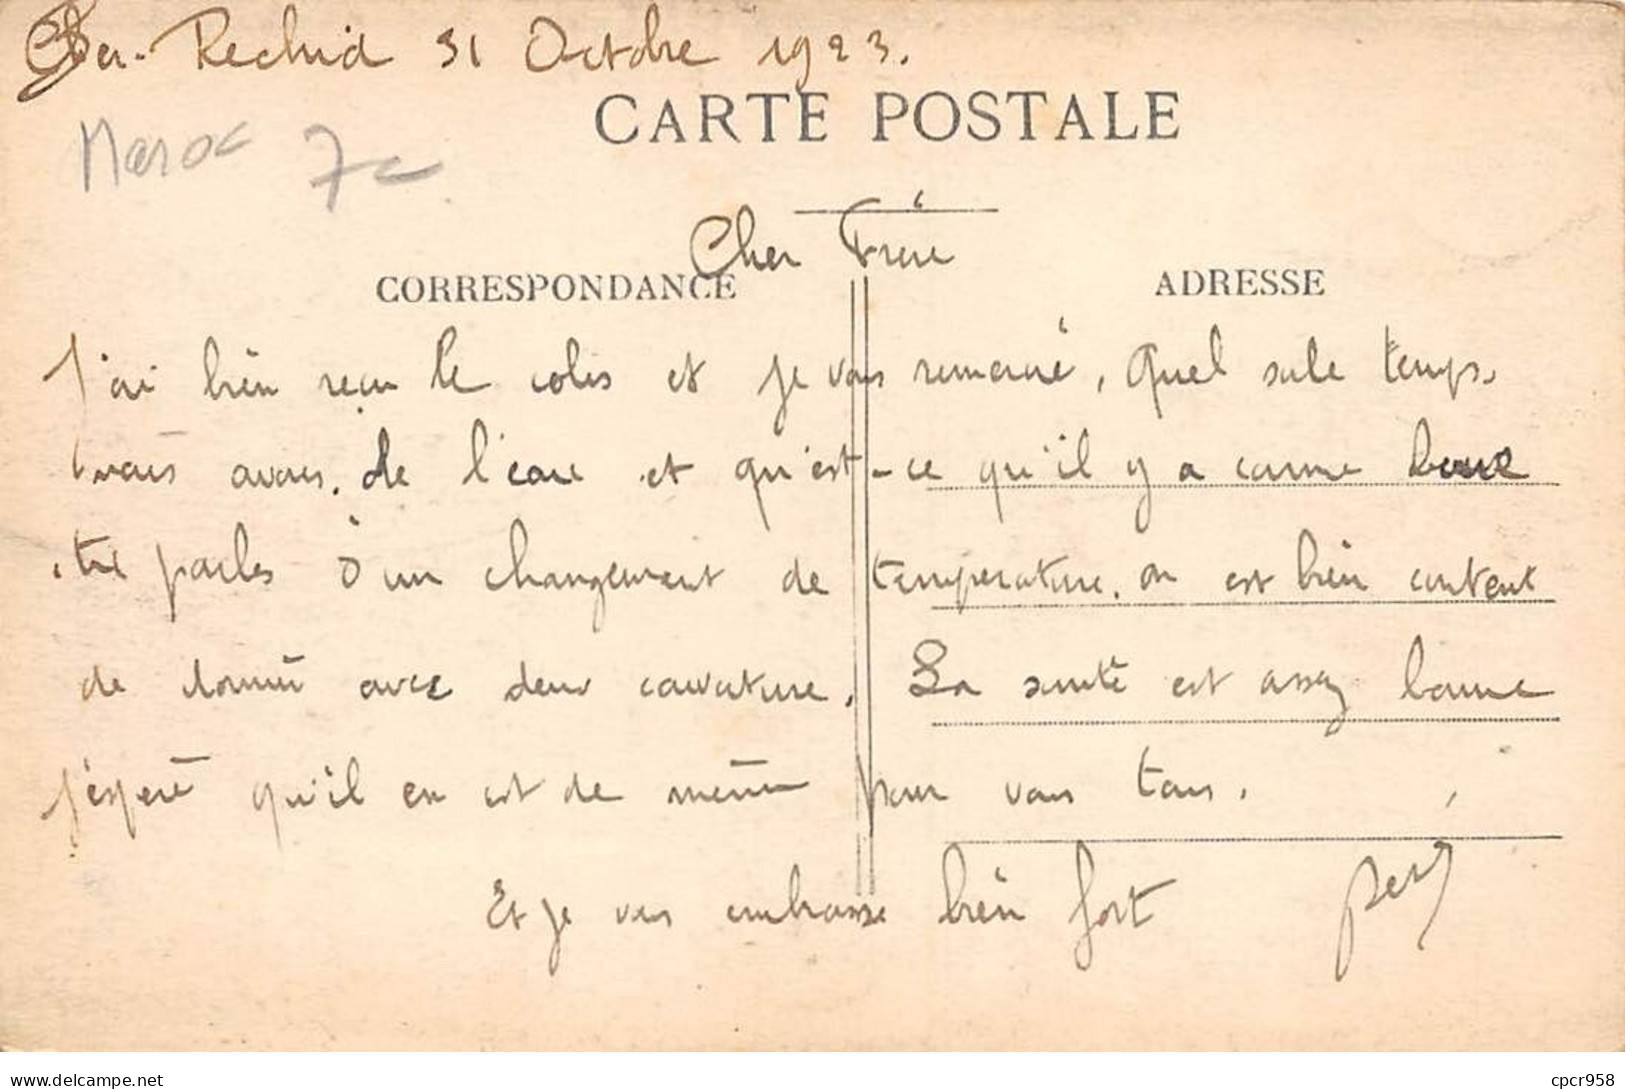 Ber-Rechid 31 Octobre 1923.
CARTE POSTALE
Maroc 7c
Cher Frère
CORRESPONDANCE ADRESSE
J'ai bien reçu le colis et je vous remercié, Quel sale temps
nous avons. de l'eau et qu'est-ce qu'il y a comme boue
tu parles d'un changement de température. on est bien content
de dormir avec deux couverture. La santé est assez bonne
j'espère qu'il en est de même pour vous tous.
Et je vous embrasse bien fort
cpcr958